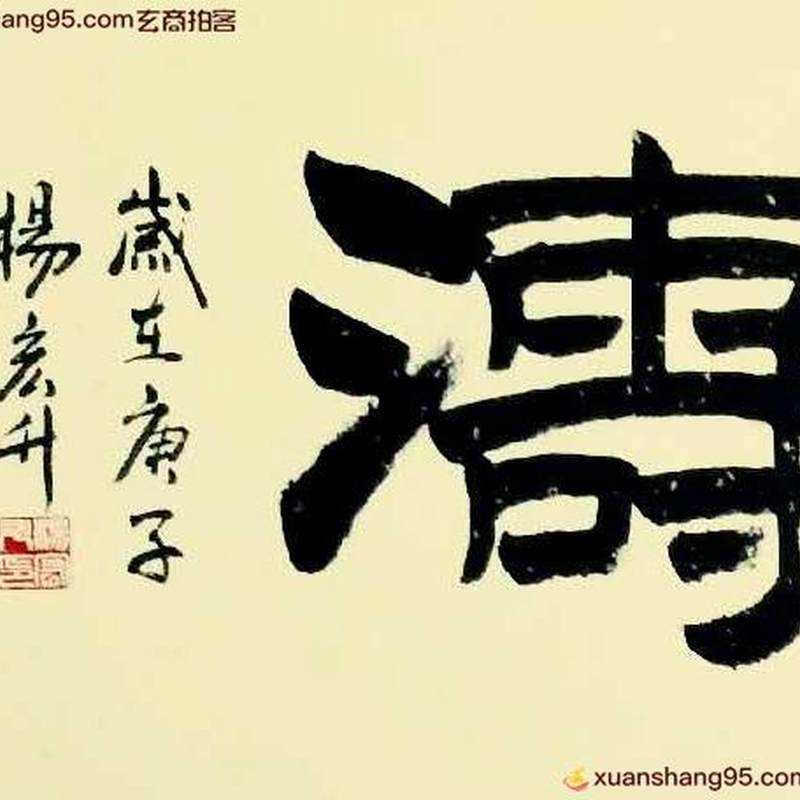 ang95.com玄商拍客
濤
歲在庚子
楊宏升
xuanshang95.com